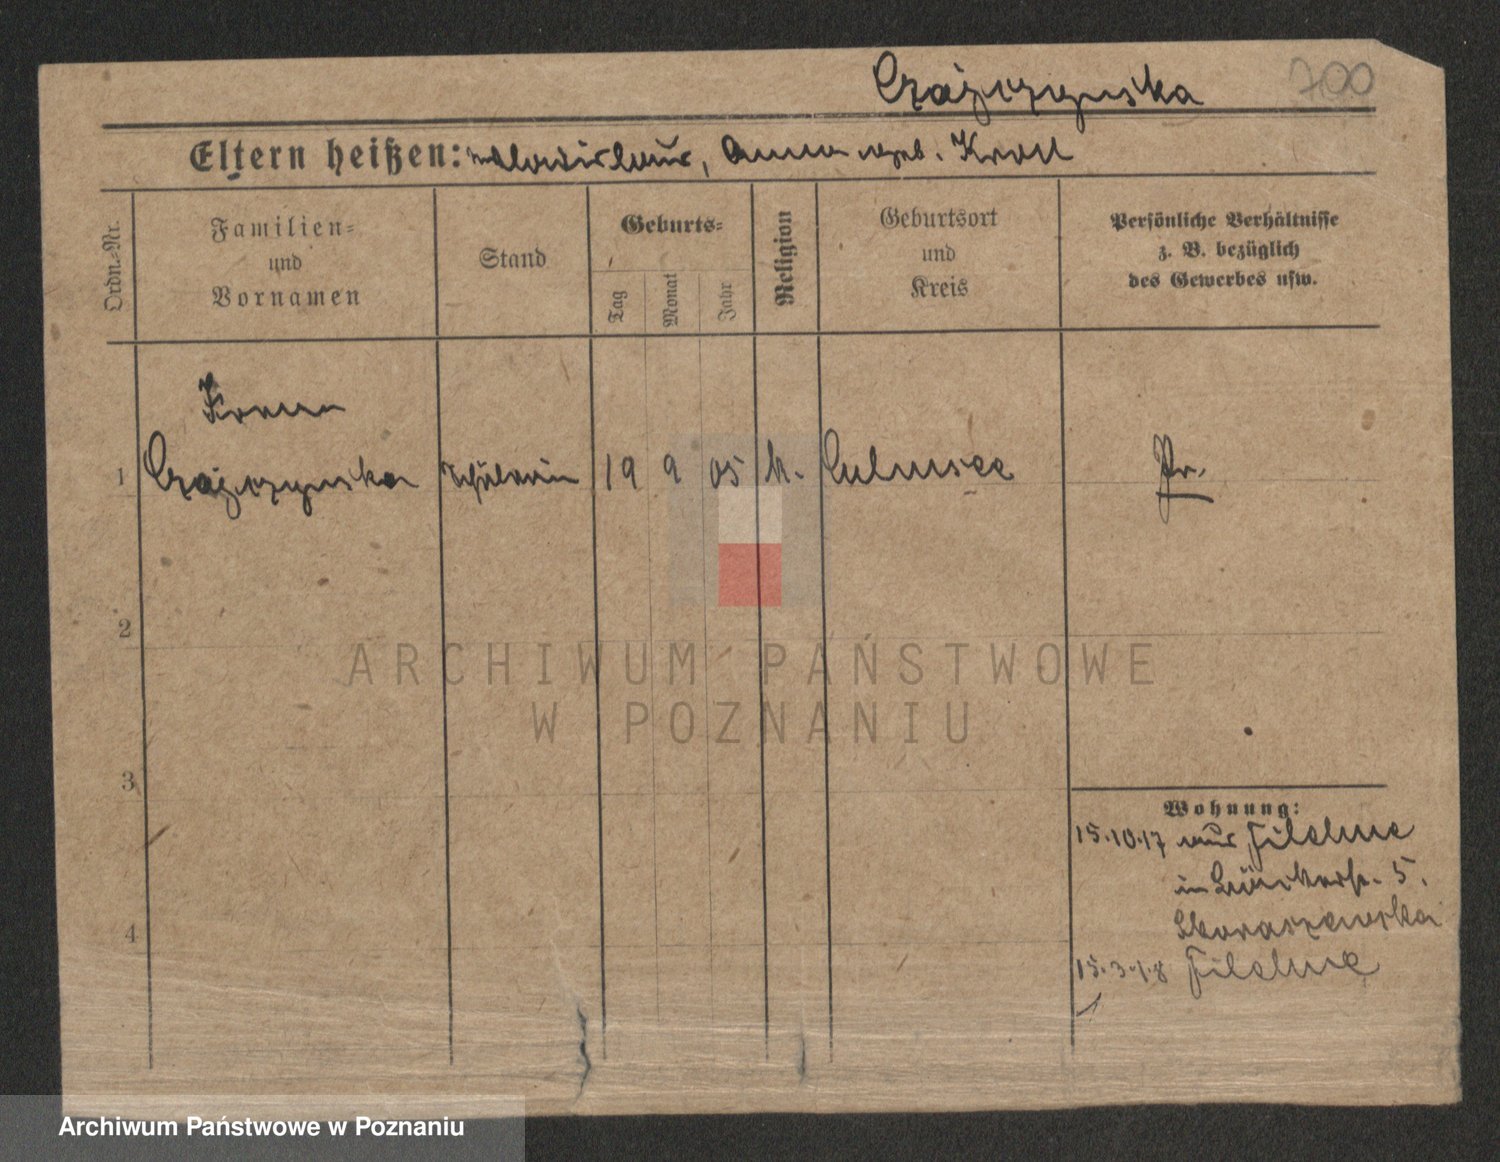 Czajczynska 700
Eltern heißen: Wladislaus, Anna geb. Kroll
Ordn.-Nr.
Familien-
und
Vornamen
Stand
Geburts-
Tag
Monat
Jahr
Religion
Geburtsort
und
Kreis
Persönliche Verhältnisse
z. B. bezüglich
des Gewerbes usw.
1 Czajczynska Schülerin 19 9 05 k. Culmsee Pr.
2
3
4
Wohnung:
15.10.17 aus Filehne
in 5.
Skoraszewska
15.3.18 Filehne
ARCHIWUM PAŃSTWOWE
W POZNANIU
Archiwum Państwowe w Poznaniu